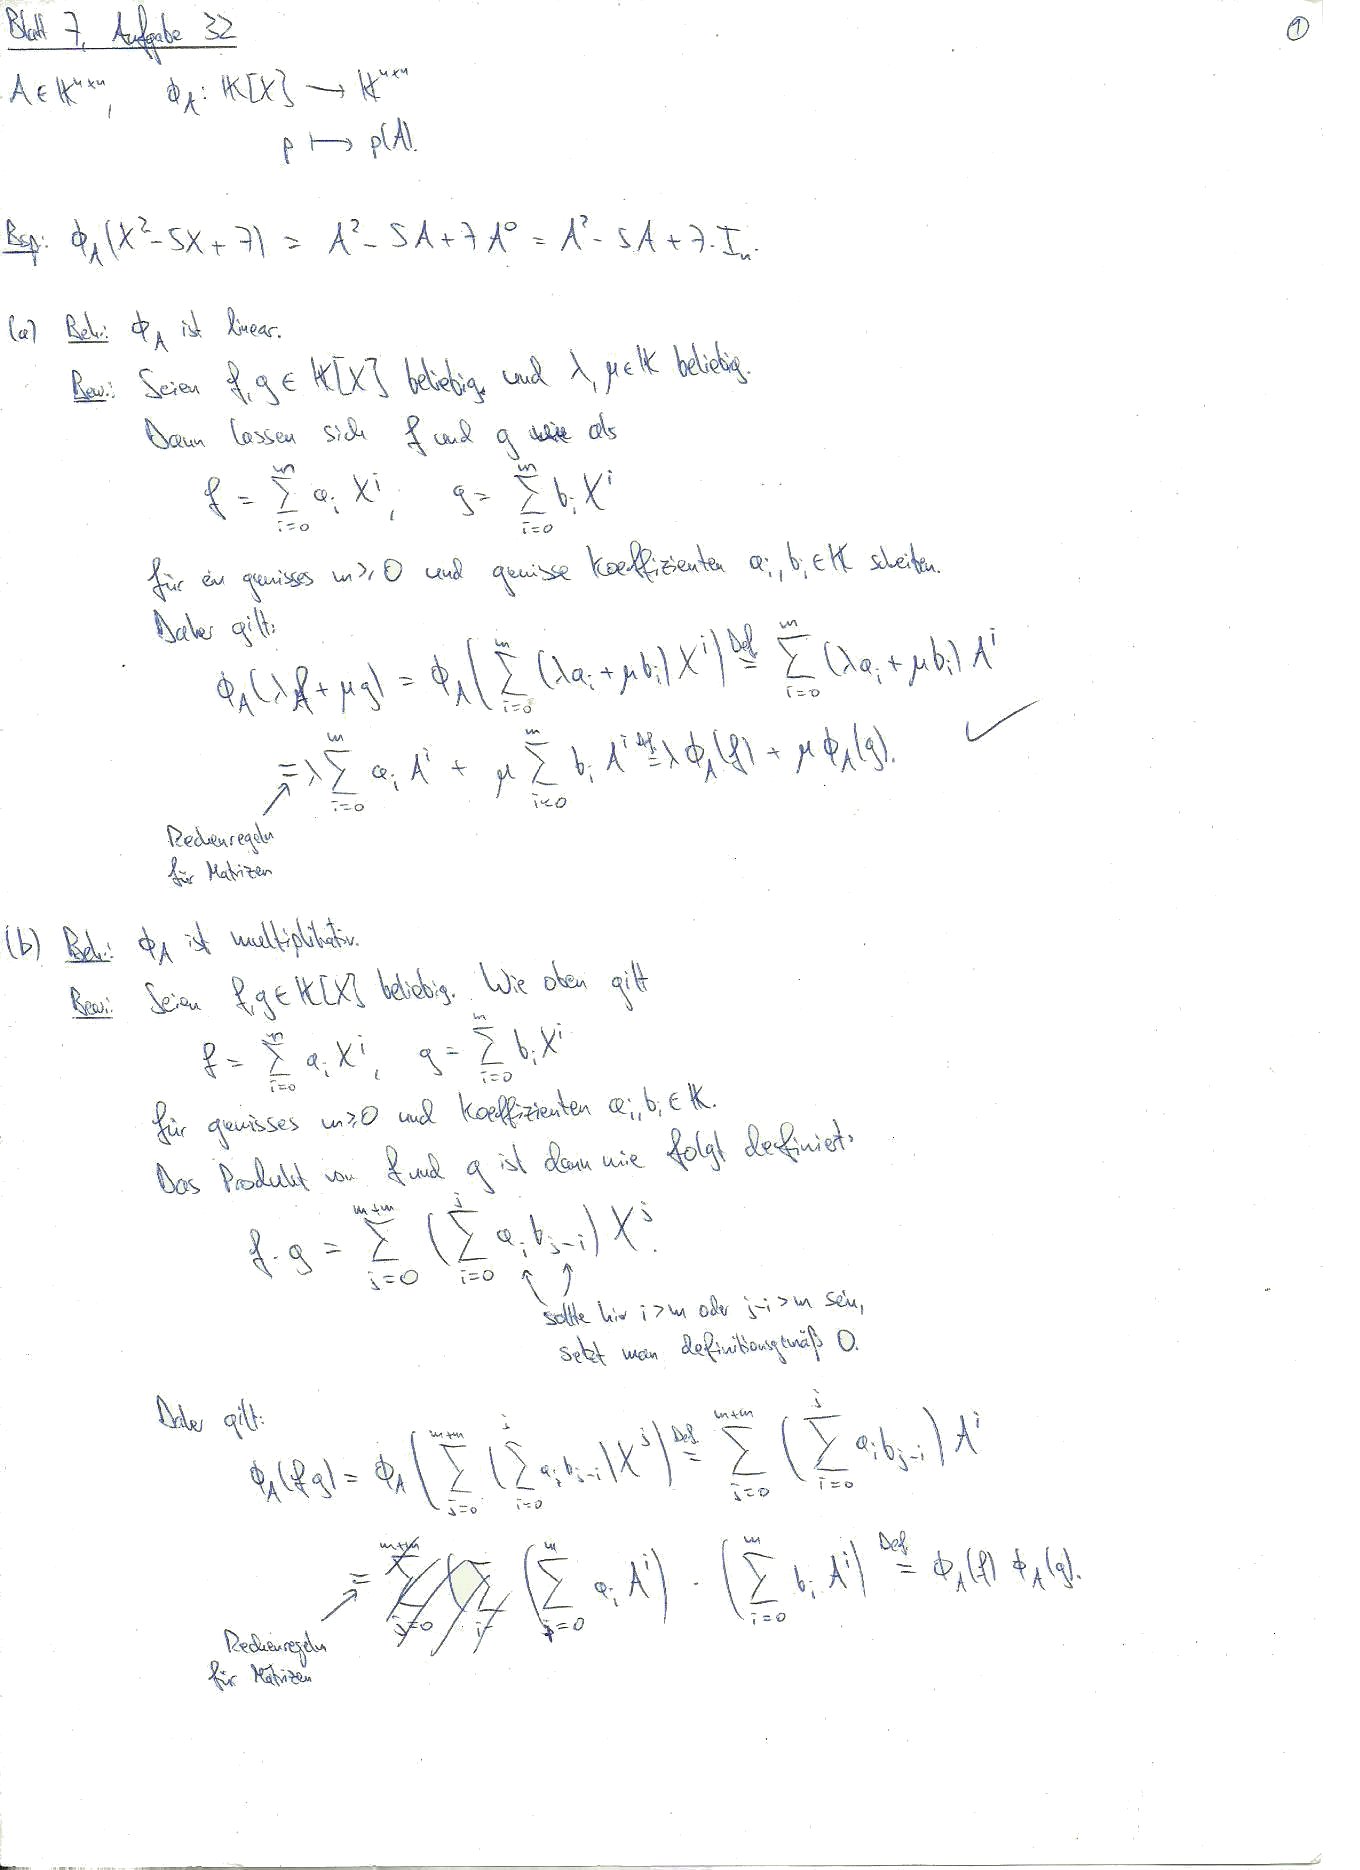 Blatt 7, Aufgabe 32
①
A ∈ K^{n×n}, ϕ_A: K[X] → K^{n×n}
p ↦ p(A).
Bsp.: ϕ_A(X² - 5X + 7) = A² - 5A + 7A⁰ = A² - 5A + 7·I_n.
(a) Beh.: ϕ_A ist linear.
Bew.: Seien f, g ∈ K[X] beliebig und λ, μ ∈ K beliebig.
Dann lassen sich f und g als
f = ∑_{i=0}^{m} a_i X^i, g = ∑_{i=0}^{m} b_i X^i
für ein gewisses m ≥ 0 und gewisse Koeffizienten a_i, b_i ∈ K schreiben.
Daher gilt:
ϕ_A(λf + μg) = ϕ_A(∑_{i=0}^{m} (λa_i + μb_i) X^i) =^{Def.} ∑_{i=0}^{m} (λa_i + μb_i) A^i
= λ ∑_{i=0}^{m} a_i A^i + μ ∑_{i=0}^{m} b_i A^i =^{Def.} λ ϕ_A(f) + μ ϕ_A(g). ✓
Rechenregeln
für Matrizen
(b) Beh.: ϕ_A ist multiplikativ.
Bew.: Seien f, g ∈ K[X] beliebig. Wie oben gilt
f = ∑_{i=0}^{m} a_i X^i, g = ∑_{i=0}^{m} b_i X^i
für gewisses m ≥ 0 und Koeffizienten a_i, b_i ∈ K.
Das Produkt von f und g ist dann wie folgt definiert:
f·g = ∑_{j=0}^{m+m} (∑_{i=0}^{j} a_i b_{j-i}) X^j.
sollte hier i > m oder j-i > m sein,
setzt man definitionsgemäß 0.
Daher gilt:
ϕ_A(fg) = ϕ_A(∑_{j=0}^{m+m} (∑_{i=0}^{j} a_i b_{j-i}) X^j) =^{Def.} ∑_{j=0}^{m+m} (∑_{i=0}^{j} a_i b_{j-i}) A^j
= (∑_{i=0}^{m} a_i A^i) · (∑_{i=0}^{m} b_i A^i) =^{Def.} ϕ_A(f) ϕ_A(g).
Rechenregeln
für Matrizen